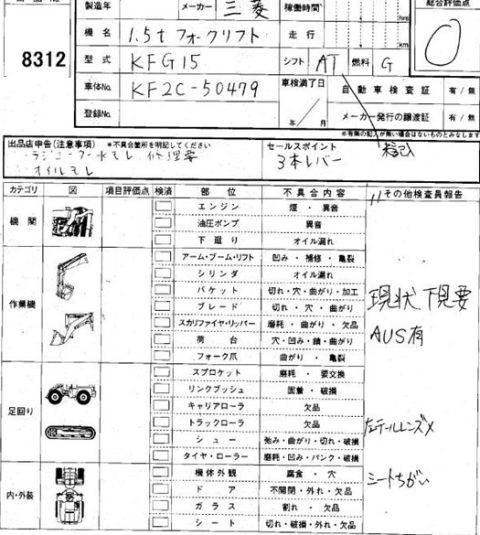 製造年 メーカー 三菱 稼働時間 総合評価点
hrs
8312 機名 1.5t フォークリフト 走行 0
型式 KFG15 シフト AT 燃料 G
車体No. KF2C-50479 車検満了日 自動車検査証 有/無
登録No. 年/月 メーカー発行の譲渡証 有/無
※有無の記入が無い場合はないものとみなします
出品店申告(注意事項) ※不具合箇所を明記してください セールスポイント 未記入
ラジエーター水モレ 修理要 3本レバー
オイルモレ
カテゴリ 図 項目評価点 検済 部位 不具合内容 その他検査員報告
機関 エンジン 煙・異音
油圧ポンプ 異音
下廻り オイル漏れ
作業機 アーム・ブーム・リフト 凹み・補修・亀裂
シリンダ オイル漏れ
バケット 切れ・穴・曲がり・加工 現状下見要
ブレード 切れ・穴・曲がり
スカリファイヤ・リッパー 磨耗・曲がり・欠品 AUS有
荷台 穴・凹み・錆・曲がり
フォーク爪 曲がり・亀裂
足回り スプロケット 磨耗・要交換
リンクブッシュ 固着・破損
キャリアローラ 欠品
トラックローラ 欠品 左テールレンズ×
シュー 弛み・曲がり・切れ・破損
タイヤ・ローラー 磨耗・凹み・パンク・破損
内・外装 機体外観 腐食・穴 シートちがい
ドア 不開閉・外れ・欠品
ガラス 割れ・欠品
シート 切れ・破損・外れ・欠品